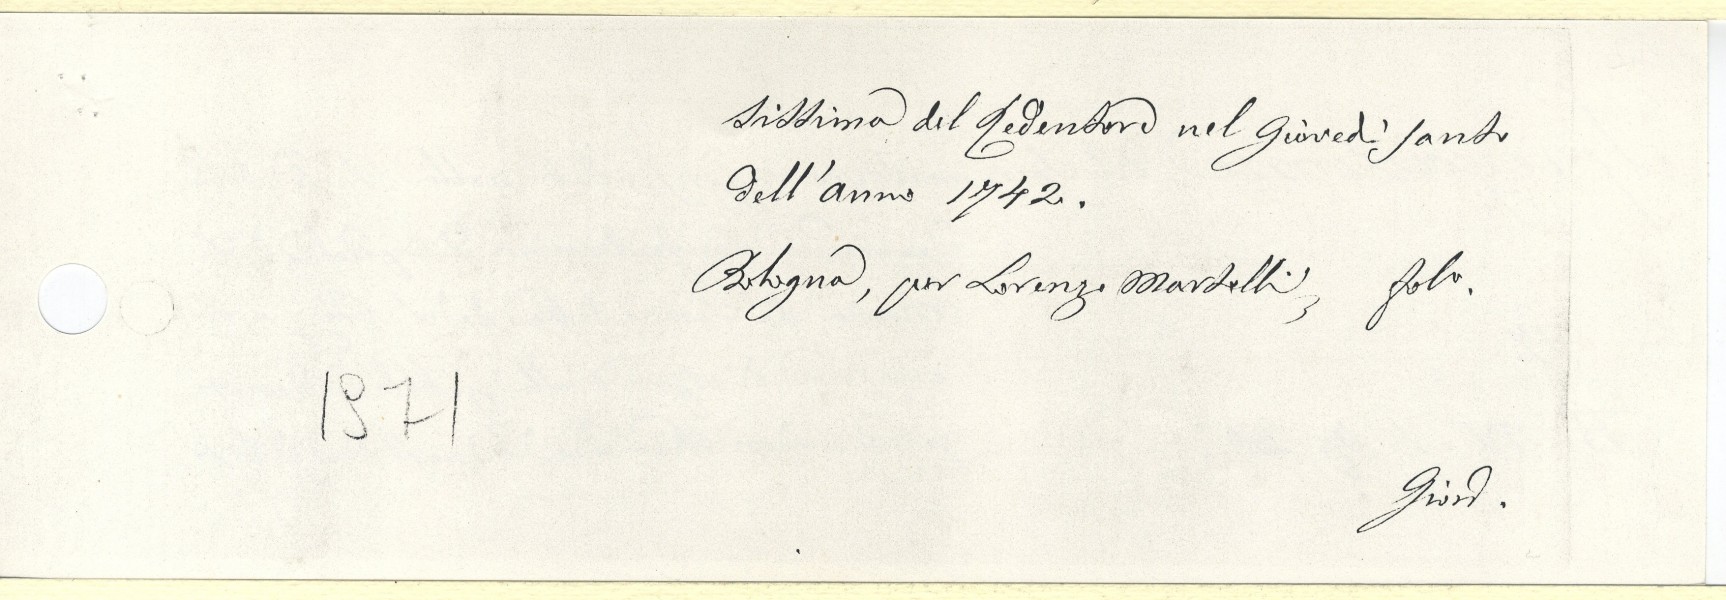 tissima del Redentore nel Giovedì santo
dell'anno 1742.
Bologna, per Lorenzo Martelli, folo.
1971
Giord.